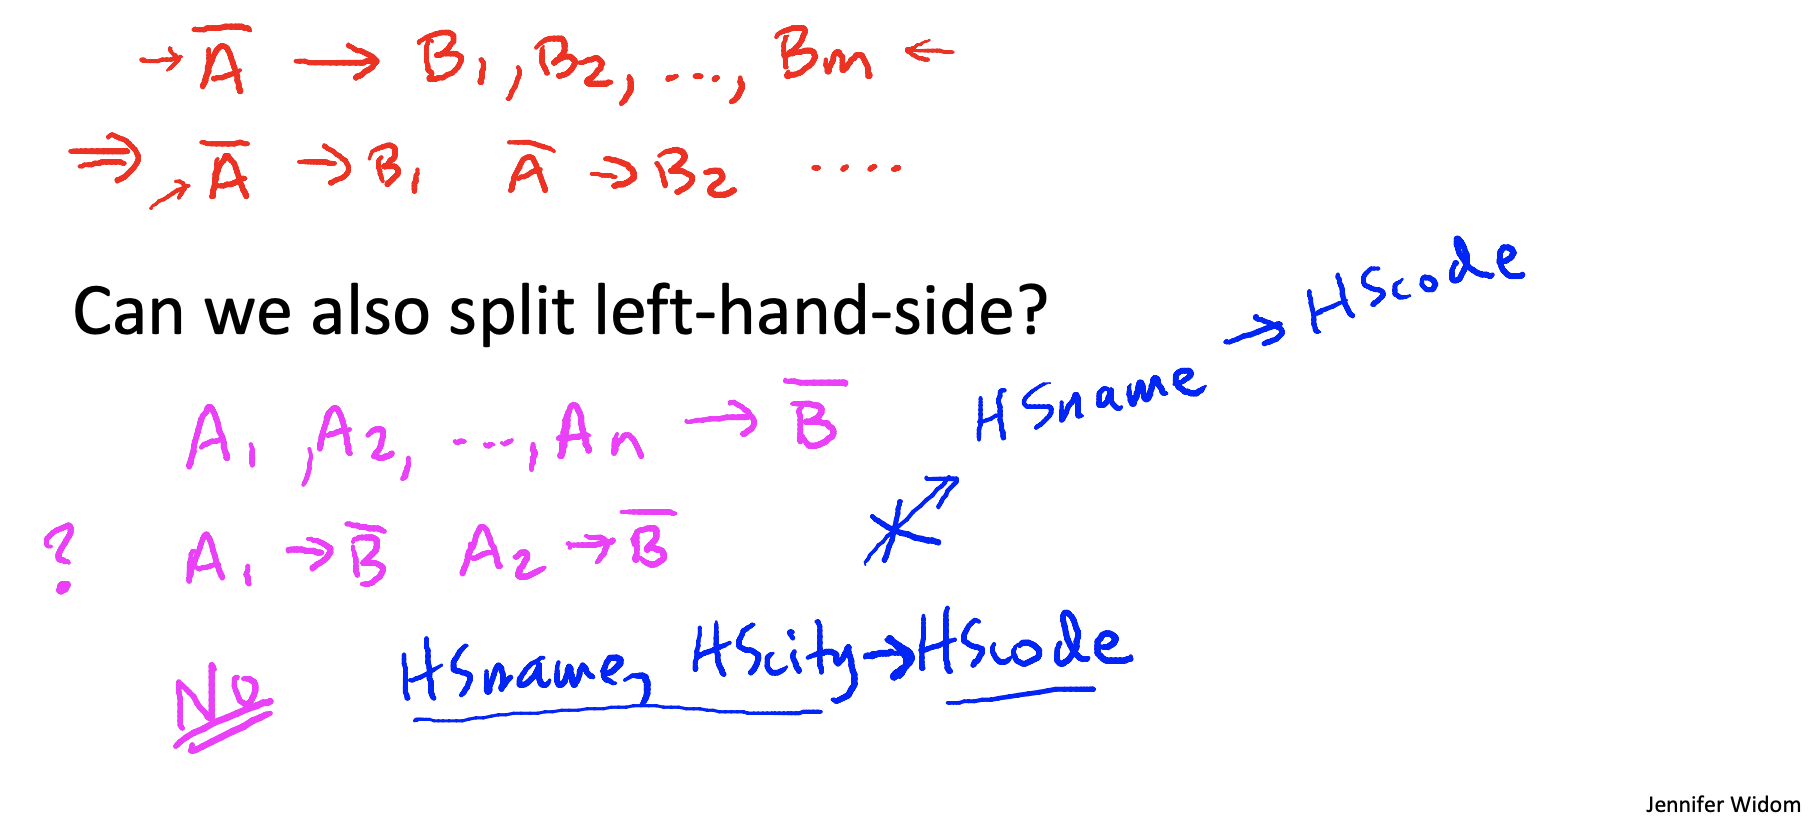 → A̅ → B₁, B₂, ..., Bm ←
⇒ → A̅ → B₁ A̅ → B₂ ....
Can we also split left-hand-side?
A₁, A₂, ..., An → B̅
? A₁ → B̅ A₂ → B̅
No
HSname → HScode
HSname, HScity → HScode
Jennifer Widom